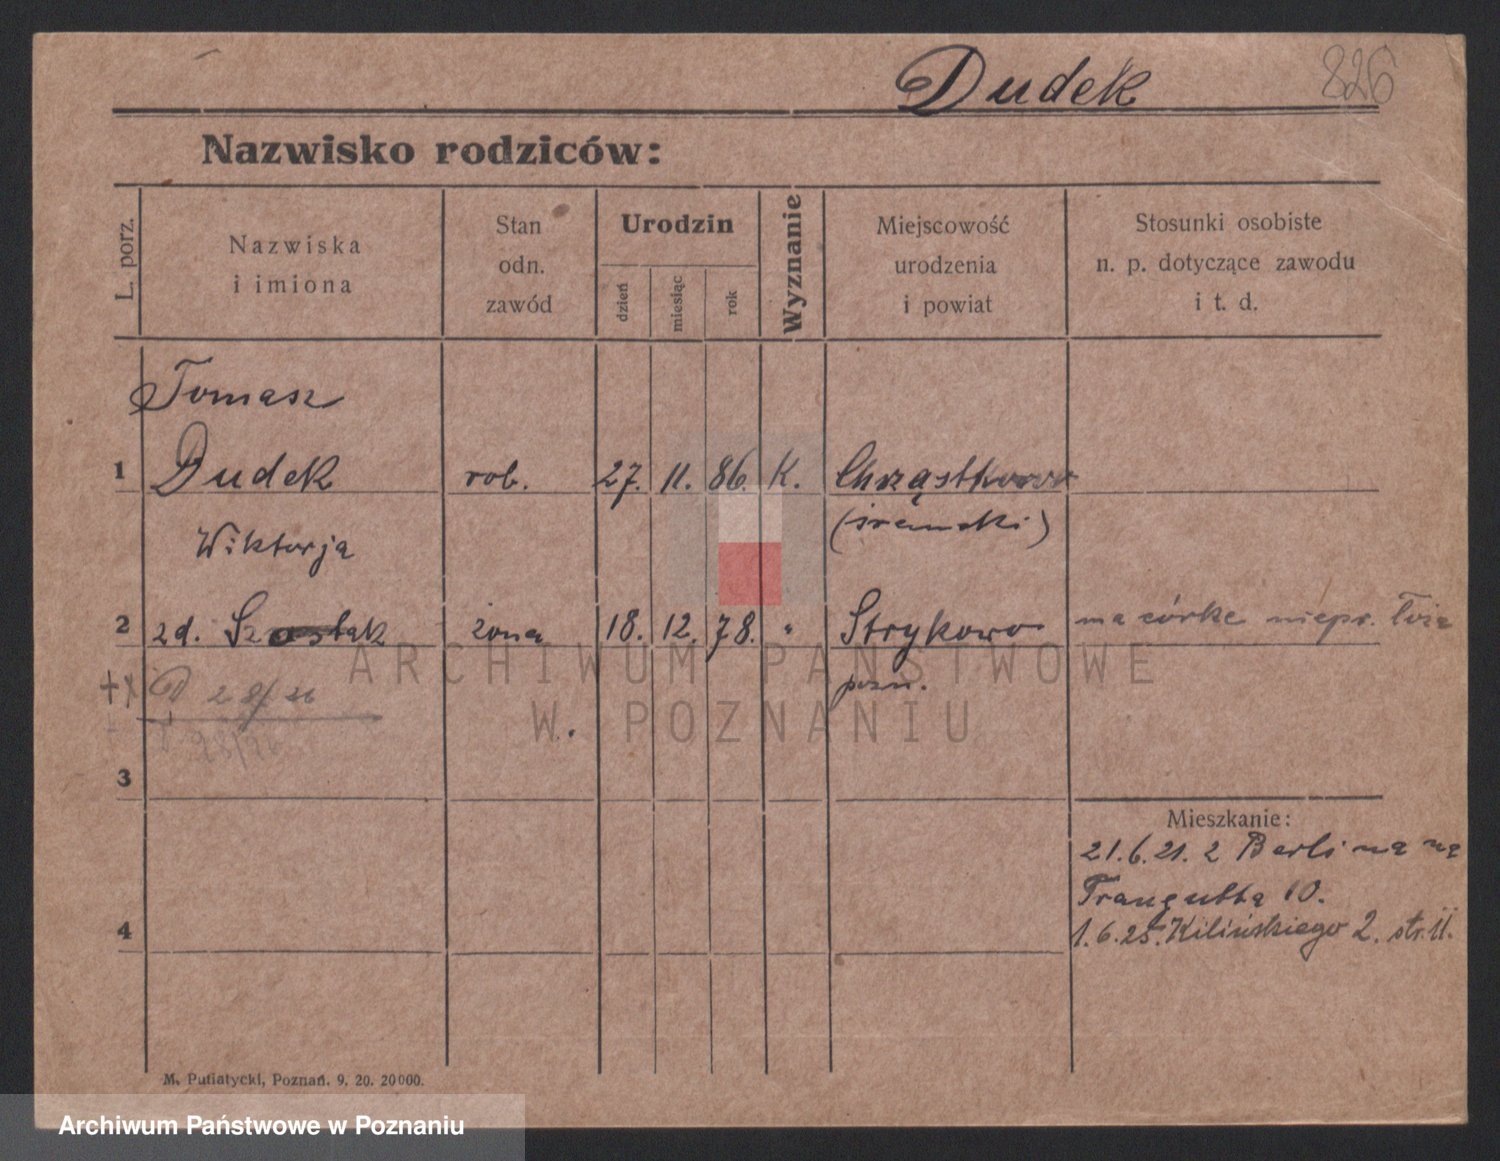 Dudek 826
Nazwisko rodziców:
L. porz.
Nazwiska
i imiona
Stan
odn.
zawód
Urodzin
dzień
miesiąc
rok
Wyznanie
Miejscowość
urodzenia
i powiat
Stosunki osobiste
n. p. dotyczące zawodu
i t. d.
Tomasz
1 Dudek rob. 27. 11. 86. K. Chrząstkowo
(śremski)
Wiktorja
2 zd. żona 18. 12. 78. " Strykowo ma córkę niepr.
pozn.
28/26
3
Mieszkanie:
21.6.21. z Berlina na
Traugutta 10.
4 1.6.25. Kilińskiego 2. str. II.
M. Putiatycki, Poznań. 9. 20. 20000.
ARCHIWUM PAŃSTWOWE
W POZNANIU
Archiwum Państwowe w Poznaniu